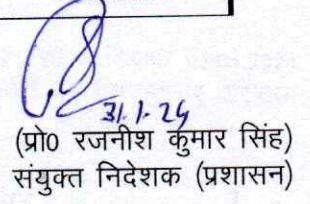 31.1.24
(प्रो0 रजनीश कुमार सिंह)
संयुक्त निदेशक (प्रशासन)